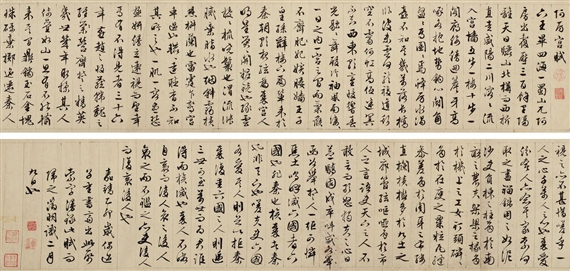 阿房宮賦
六王畢四海一蜀山兀阿
房出覆壓三百餘里隔
離天日驪山北構而西折
直走咸陽二川溶溶流
入宮墻五步一樓十步一
閣廊腰縵迴簷牙高
啄各抱地勢鉤心鬪角
盤盤焉囷囷焉蜂房水
渦矗不知其幾千萬落長橋
臥波未雲何龍複道行
空不霽何虹高低冥迷
不知西東歌臺暖響春
光融融舞殿冷袖風雨凄凄
一日之內一宮之間而氣候
不齊妃嬪媵嬙王子
皇孫辭樓下殿輦來於
秦朝歌夜絃為秦宮人
明星熒熒開粧鏡也綠雲
擾擾梳曉鬟也渭流漲
膩棄脂水也煙斜霧橫
焚椒蘭也雷霆乍驚宮
車過也轆轆遠聽杳不知
其所之也一肌一容盡態
極妍縵立遠視而望幸
焉有不得見者三十六
年燕趙之收藏韓魏之
經營齊楚之精英
幾世幾年取掠其人
倚疊如山一旦不能有輸
來其間鼎鐺玉石金塊
珠礫棄擲邐迤秦人
視之亦不甚惜嗟乎一
人之心千萬人之心也秦愛
紛奢人亦念其家奈何
取之盡錙銖用之如泥
沙使負棟之柱多於南
畝之農夫架梁之椽多
於機上之工女釘頭磷
磷多於在庾之粟粒瓦縫
參差多於周身之帛縷
直欄橫檻多於九土之
城郭管絃嘔啞多於市
人之言語使天下之人不
敢言而敢怒獨夫之心日
益驕固戍卒叫函谷
舉楚人一炬可憐
焦土嗚呼滅六國者六
國也非秦也族秦者秦
也非天下也嗟夫使六國
各愛其人則足以拒秦
秦復愛六國之人則遞
三世可至萬世而為君誰
得而族滅也秦人不暇
自哀而後人哀之後人
哀之而不鑑之亦使後人
而復哀後人也
嘉靖乙卯
徵明識二月
九日也